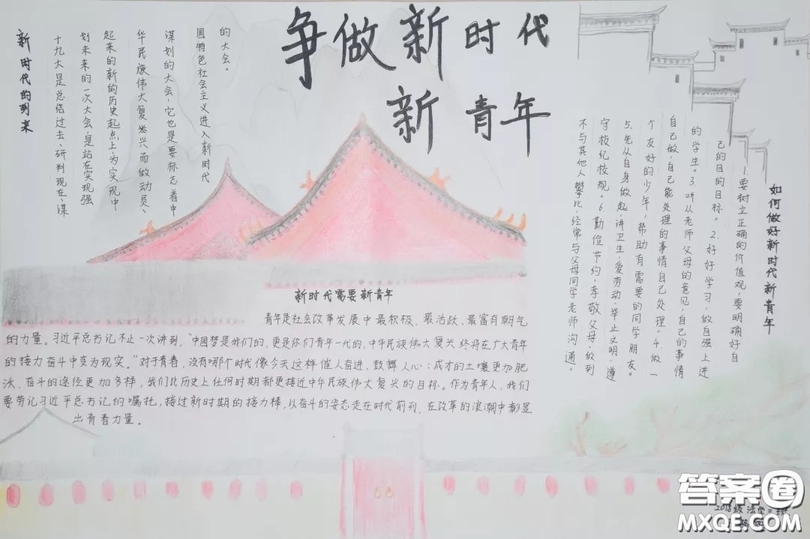 争做新时代
新青年
新时代的到来
十九大是总结过去、研判现在、谋
划未来的一次大会,是站在实现强
起来的新的历史起点上为实现中
华民族伟大复兴而做动员、
谋划的大会,它也是要标志着中
国特色社会主义进入新时代
的大会。
如何做好新时代新青年
一要树立正确的价值观,要明确好自
己的目的目标。2.好好学习,做自强上进
的学生。3.听从老师父母的意见,自己的事情
自己做,自己能处理的事情自己处理。4.做一
个友好的少年,帮助有需要的同学朋友。
5.先从自身做起,讲卫生,爱劳动,举止文明,遵
守校纪校规。6.勤俭节约,孝敬父母,做到
不与其他人攀比,经常与父母同学老师沟通。
新时代需要新青年
青年是社会改革发展中最积极、最活跃、最富有朝气
的力量。习近平总书记不止一次讲到,“中国梦是我们的,更是你们青年一代的,中华民族伟大复兴终将在广大青年
的接力奋斗中变为现实。”对于青春,没有哪个时代像今天这样催人奋进、鼓舞人心:成才的土壤更加肥
沃,奋斗的途径更加多样,我们比历史上任何时期都更接近中华民族伟大复兴的目标。作为青年人,我们
要劳记习近平总书记的嘱托,接过新时期的接力棒,以奋斗的姿态走在时代前列,在改革的浪潮中彰显
出青春力量。
答案圈
MXQE.COM